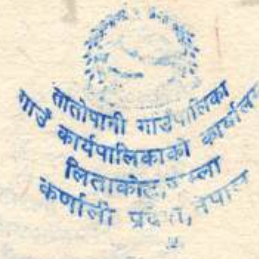 तातोपानी गाउँपालिका
गाउँ कार्यपालिकाको कार्यालय
लिताकोट, जुम्ला
कर्णाली प्रदेश, नेपाल